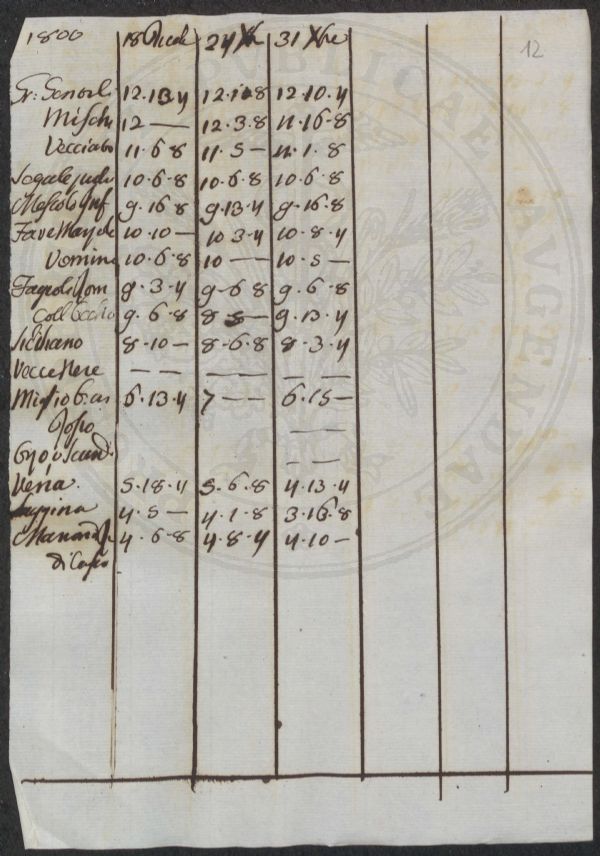 1800 18 24 Xbre 31 Xbre 12
Gr: Gentile 12.13.4 12.10.8 12.10.4
Mischi 12 — 12.3.8 11.16.8
Vecciato 11.6.8 11.5 — 11.1.8
Segale 10.6.8 10.6.8 10.6.8
9.16.8 9.13.4 9.16.8
Fave 10.10 — 10.3.4 10.8.4
10.6.8 10 — — 10.5 —
Fagioli 9.3.4 9.6.8 9.6.8
Coll'Occhio 9.6.8 8.5 — 9.13.4
Siciliano 8.10 — 8.6.8 8.3.4
Vecce Nere — — — — — —
Miglio 6.13.4 7 — — 6.15 —
— —
— —
Vena 5.18.4 5.6.8 4.13.4
Saggina 4.5 — 4.1.8 3.16.8
4.6.8 4.8.4 4.10 —
PUBLICAE AUGENDAE